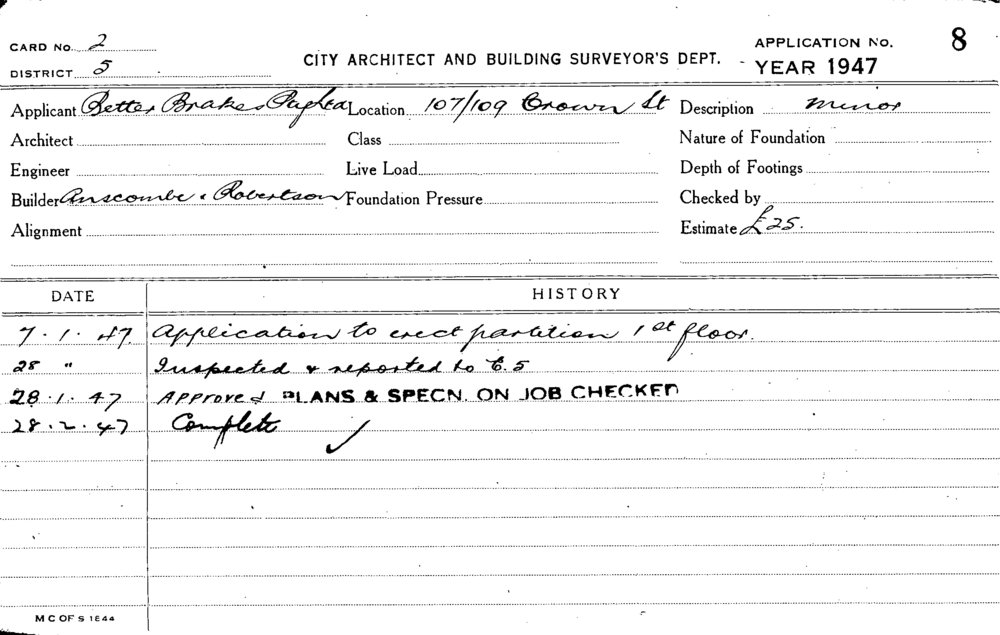 CARD No. 2
DISTRICT 5
CITY ARCHITECT AND BUILDING SURVEYOR'S DEPT.
APPLICATION No. 8
YEAR 1947
Applicant Better Brakes Location 107/109 Crown St Description Minor
Architect Class Nature of Foundation
Engineer Live Load Depth of Footings
Builder Anscombe & Robertson Foundation Pressure Checked by
Alignment Estimate £25.
DATE HISTORY
7.1.47. Application to erect partition 1st floor.
28 " Inspected & reported to E.5
28.1.47 Approved PLANS & SPECN. ON JOB CHECKED
28.2.47 Complete ✓
M C OF S 1844